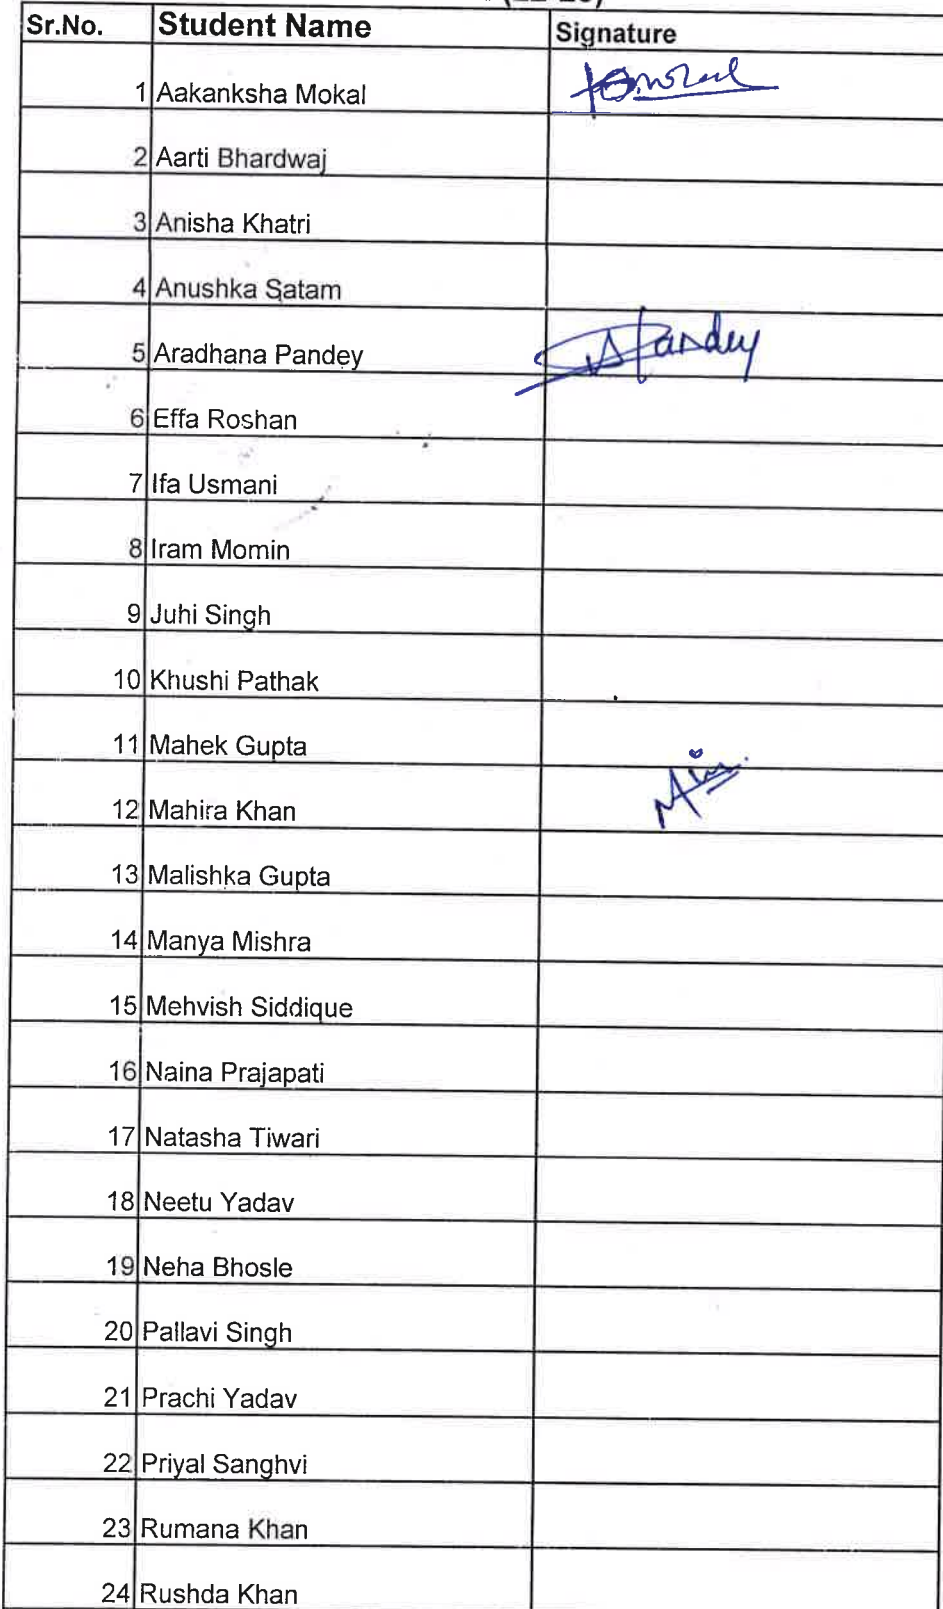 Sr.No. Student Name Signature
1 Aakanksha Mokal
2 Aarti Bhardwaj
3 Anisha Khatri
4 Anushka Satam
5 Aradhana Pandey Pandey
6 Effa Roshan
7 Ifa Usmani
8 Iram Momin
9 Juhi Singh
10 Khushi Pathak
11 Mahek Gupta
12 Mahira Khan
13 Malishka Gupta
14 Manya Mishra
15 Mehvish Siddique
16 Naina Prajapati
17 Natasha Tiwari
18 Neetu Yadav
19 Neha Bhosle
20 Pallavi Singh
21 Prachi Yadav
22 Priyal Sanghvi
23 Rumana Khan
24 Rushda Khan